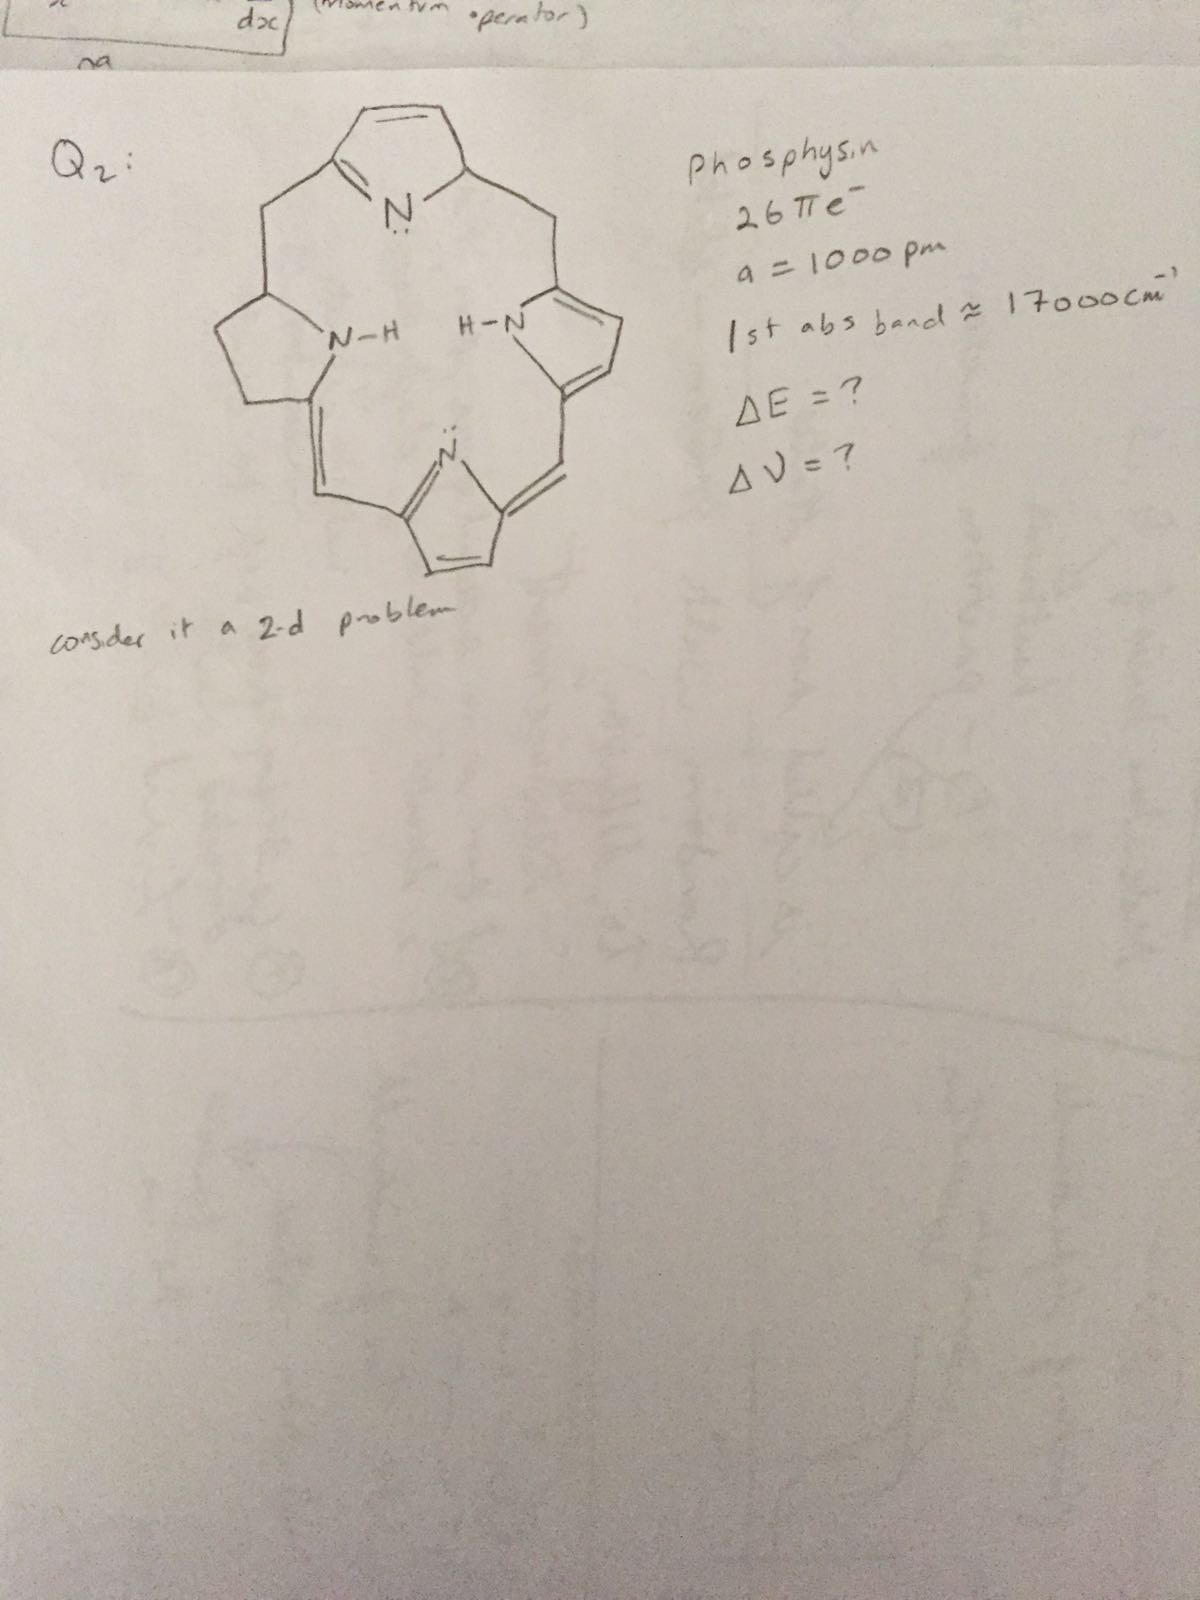 dx
(Momentum operator)
na
Q2:
N
N-H
H-N
N
Phosphysin
26 π e⁻
a = 1000 pm
1st abs band ≈ 17000 cm⁻¹
ΔE = ?
Δν = ?
consider it a 2-d problem